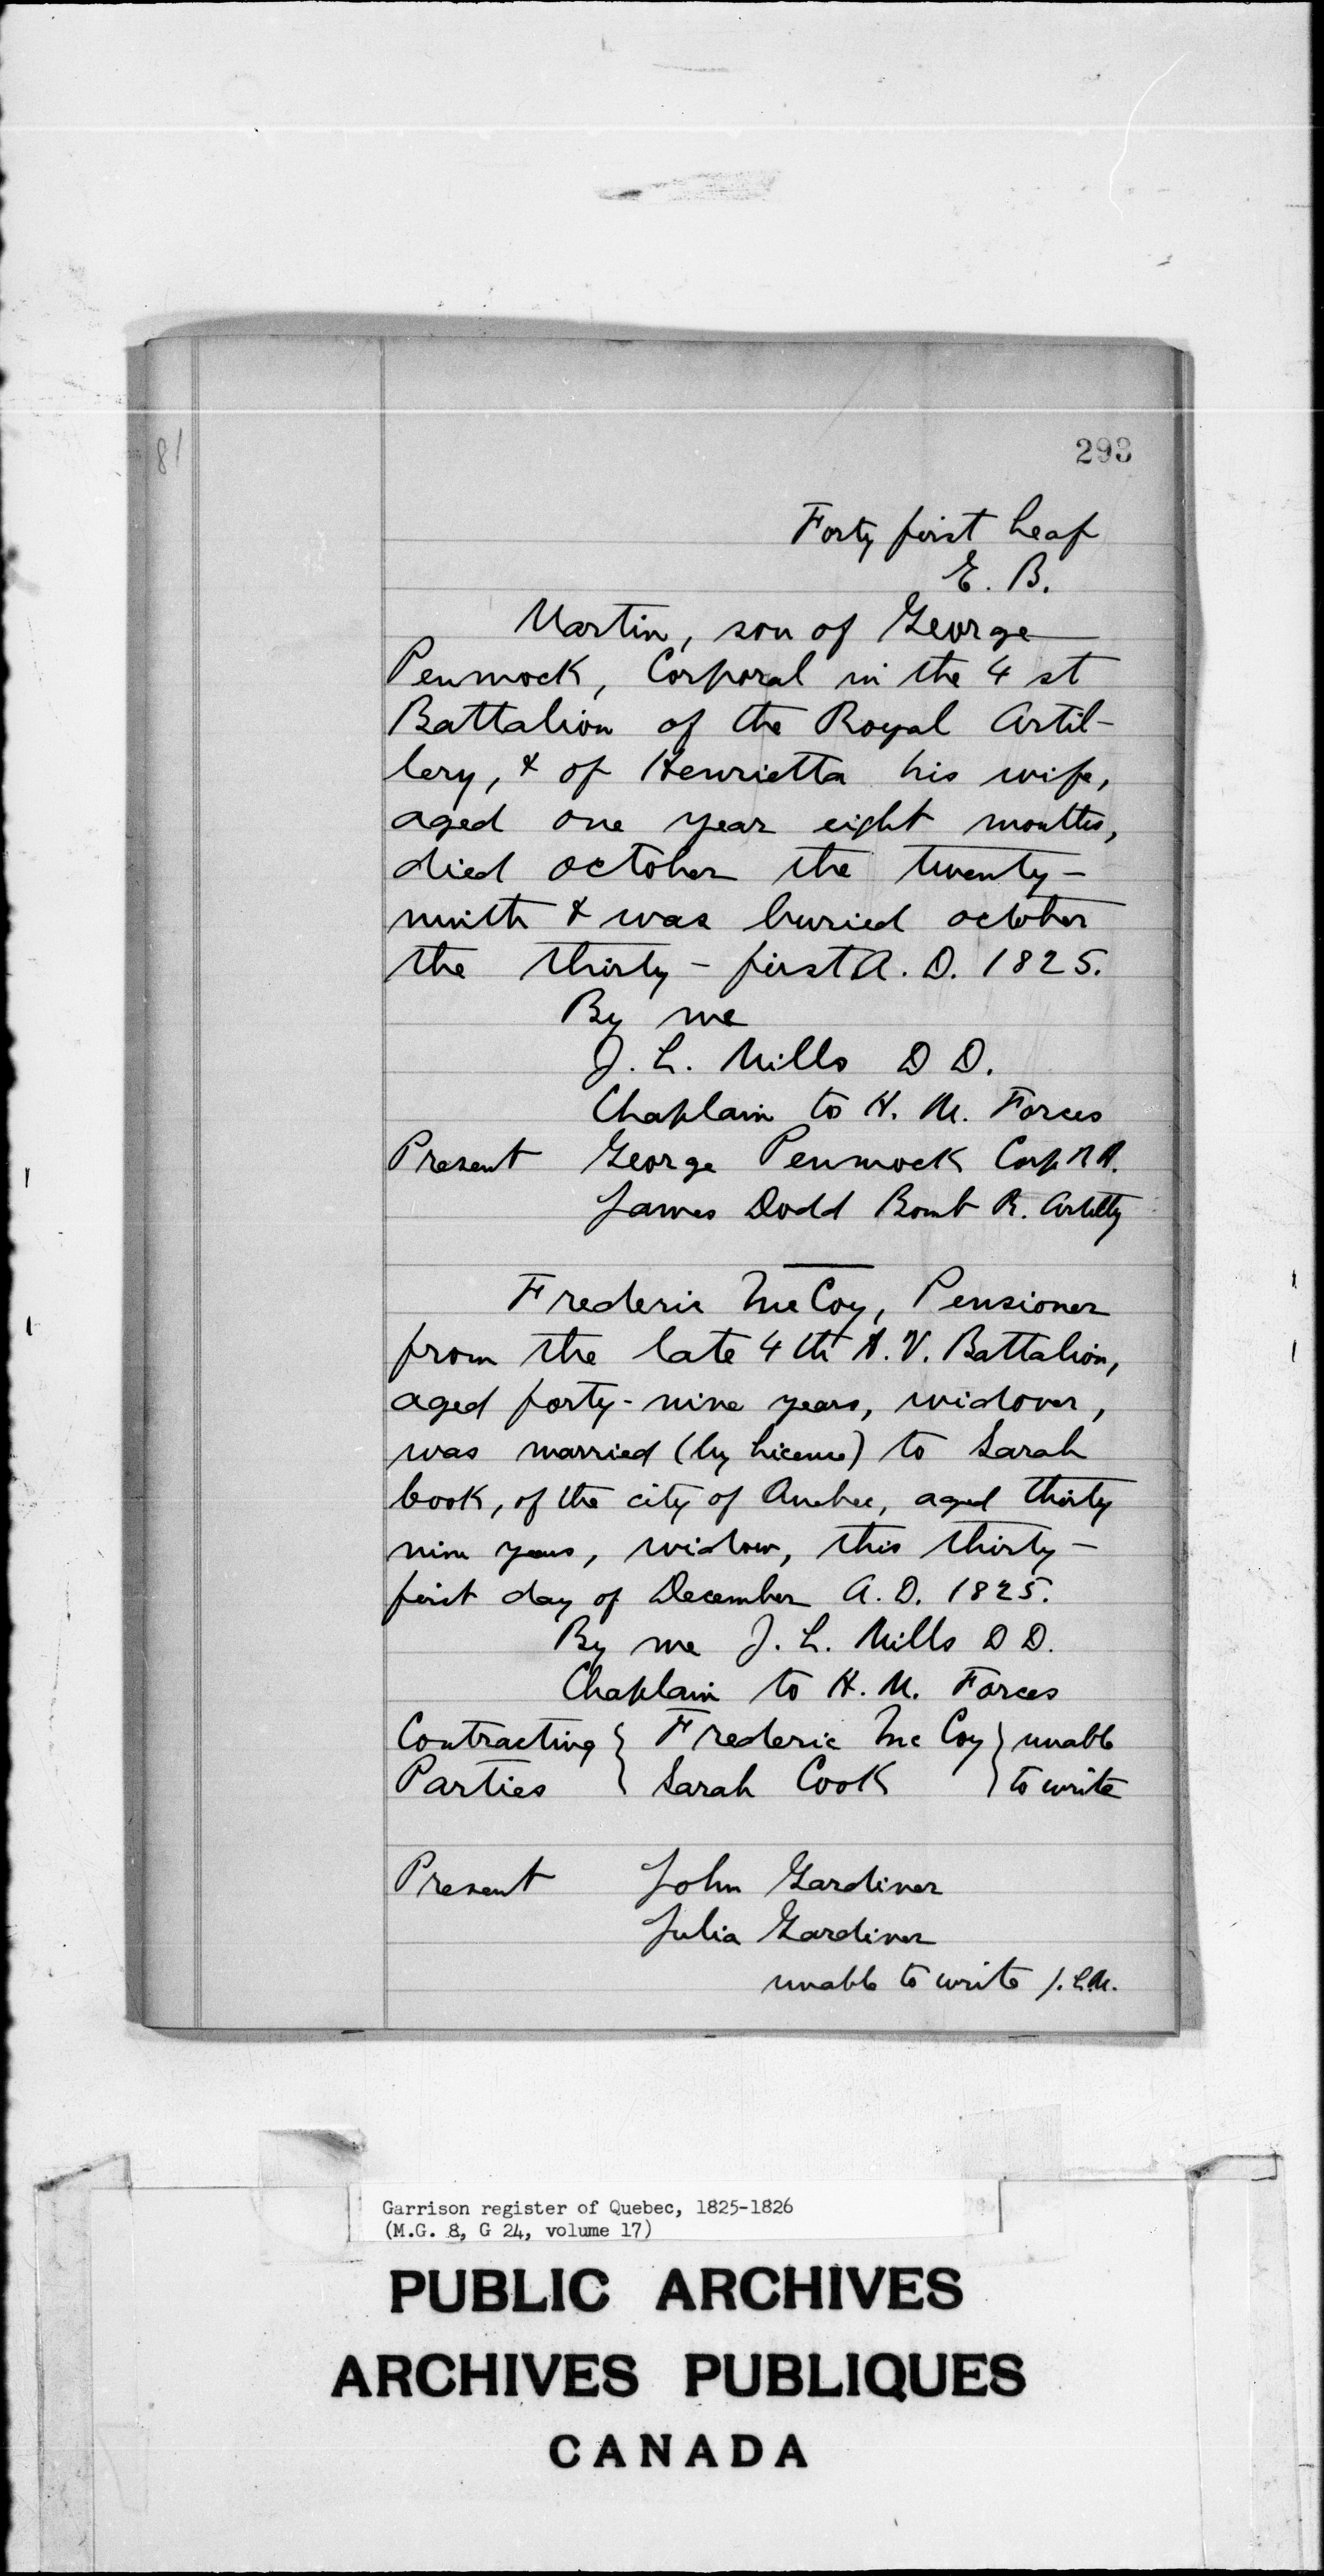 81
293
Forty first Leaf
E. B.
Martin, son of George
Penmock, Corporal in the 4 st
Battalion of the Royal Artil-
lery, & of Henrietta his wife,
aged one year eight months,
died october the twenty-
ninth & was buried october
the thirty-first A. D. 1825.
By me
J. L. Mills D D.
Chaplain to H. M. Forces
Present George Penmock Corp R A.
James Dodd Bomb R. Artilly
Frederic McCoy, Pensioner
from the late 4th R. V. Battalion,
aged forty-nine years, widower,
was married (by License) to Sarah
Cook, of the city of Quebec, aged thirty
nine years, widow, this thirty-
first day of December A. D. 1825.
By me J. L. Mills D D.
Chaplain to H. M. Forces
Contracting } Frederic Mc Coy } unable
Parties { Sarah Cook } to write
Present John Gardiner
Julia Gardiner
unable to write J. L. M.
Garrison register of Quebec, 1825-1826
(M.G. 8, G 24, volume 17)
PUBLIC ARCHIVES
ARCHIVES PUBLIQUES
CANADA